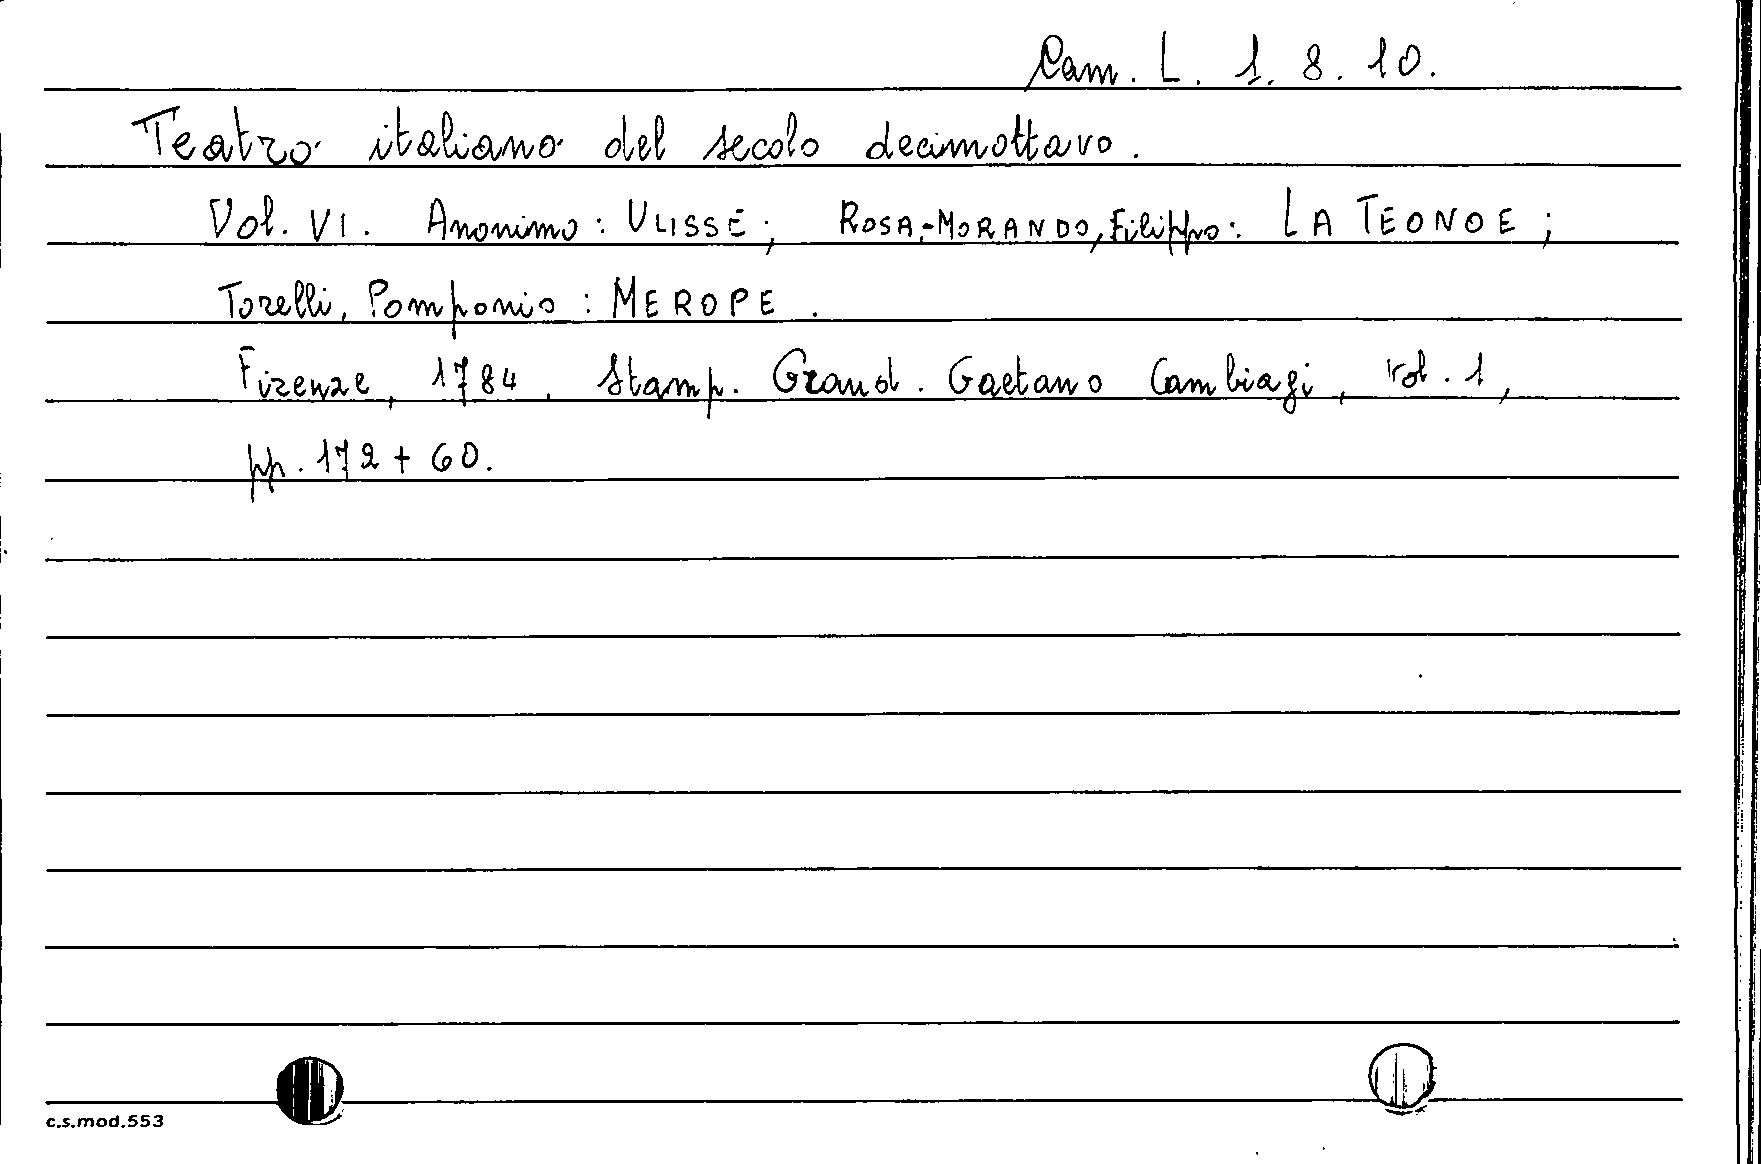 Cam. L. 1. 8. 10.
Teatro italiano del secolo decimottavo.
Vol. VI. Anonimo: ULISSE; ROSA-MORANDO, Filippo: LA TEONOE;
Torelli, Pomponio: MEROPE.
Firenze, 1784, Stamp. Grand. Gaetano Cambiagi, vol. 1,
pp. 172 + 60.
c.s.mod.553